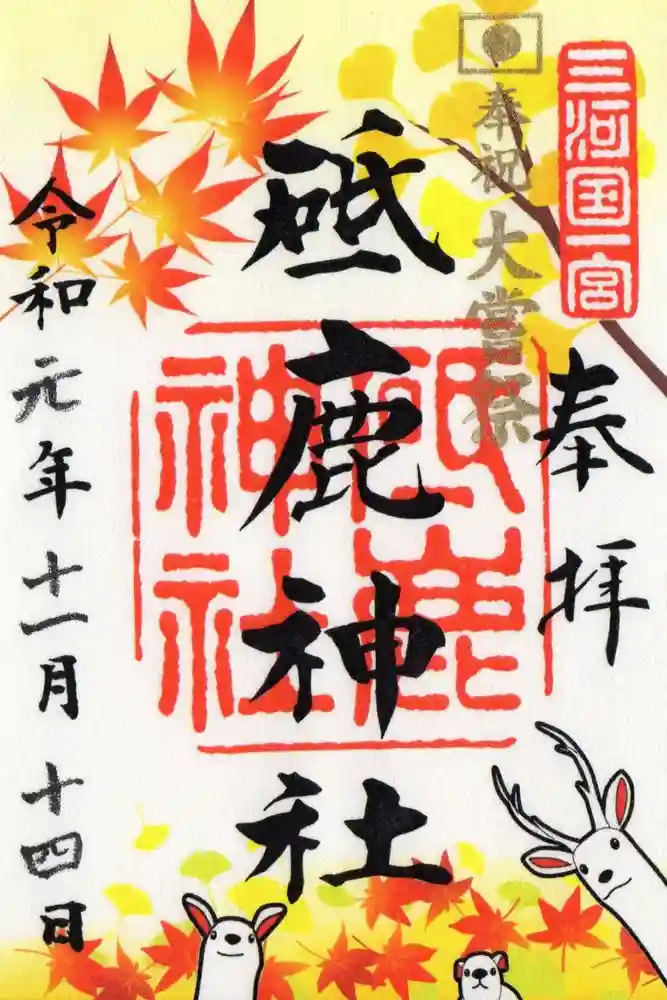 三河国一宮
奉拝
奉祝 大嘗祭
砥鹿神社
砥鹿
神社
令和元年十一月十四日